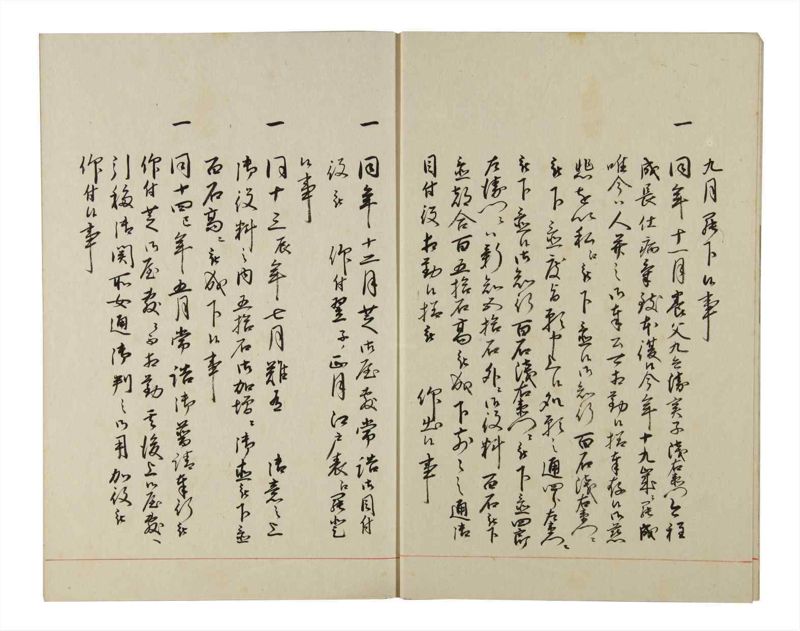 九月罷下候事
一 同年十一月養父九兵衛実子浅右衛門
成長仕病気 候今年十九歳ニ罷成
唯今ハ人並之御奉公相勤候 奉存候御慈
悲を以私江被下置候御知行百石浅右衛門江
被下置度旨願申上候処願之通四郎左衛門江
被下置候御知行百石浅右衛門江被下置四郎
左衛門江ハ新知五拾石外ニ御役料百石被下
置都合百五拾石高被成下前々之通御
目付役相勤候様被 仰出候事
一 同年十二月芝御屋敷常詰御目付
役被 仰付翌子ノ正月江戸表江罷登
候事
一 同十三辰年七月難有 御意之上
御役料之内五拾石御加増ニ御直被下置
百石高ニ被成下候事
一 同十四巳年五月常詰御普請奉行被
仰付芝御屋敷ニ而相勤其後上御屋敷江
引移御関所女通御判之御用加役被
仰付候事